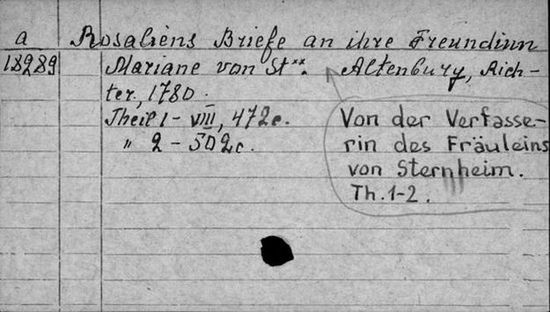 a Rosaliens Briefe an ihre Freundinn
18289 Mariane von St**. Altenburg, Rich-
ter, 1780.
Theil 1 - VIII, 472c.
" 2 - 502c.
Von der Verfasse-
rin des Fräuleins
von Sternheim.
Th. 1-2.